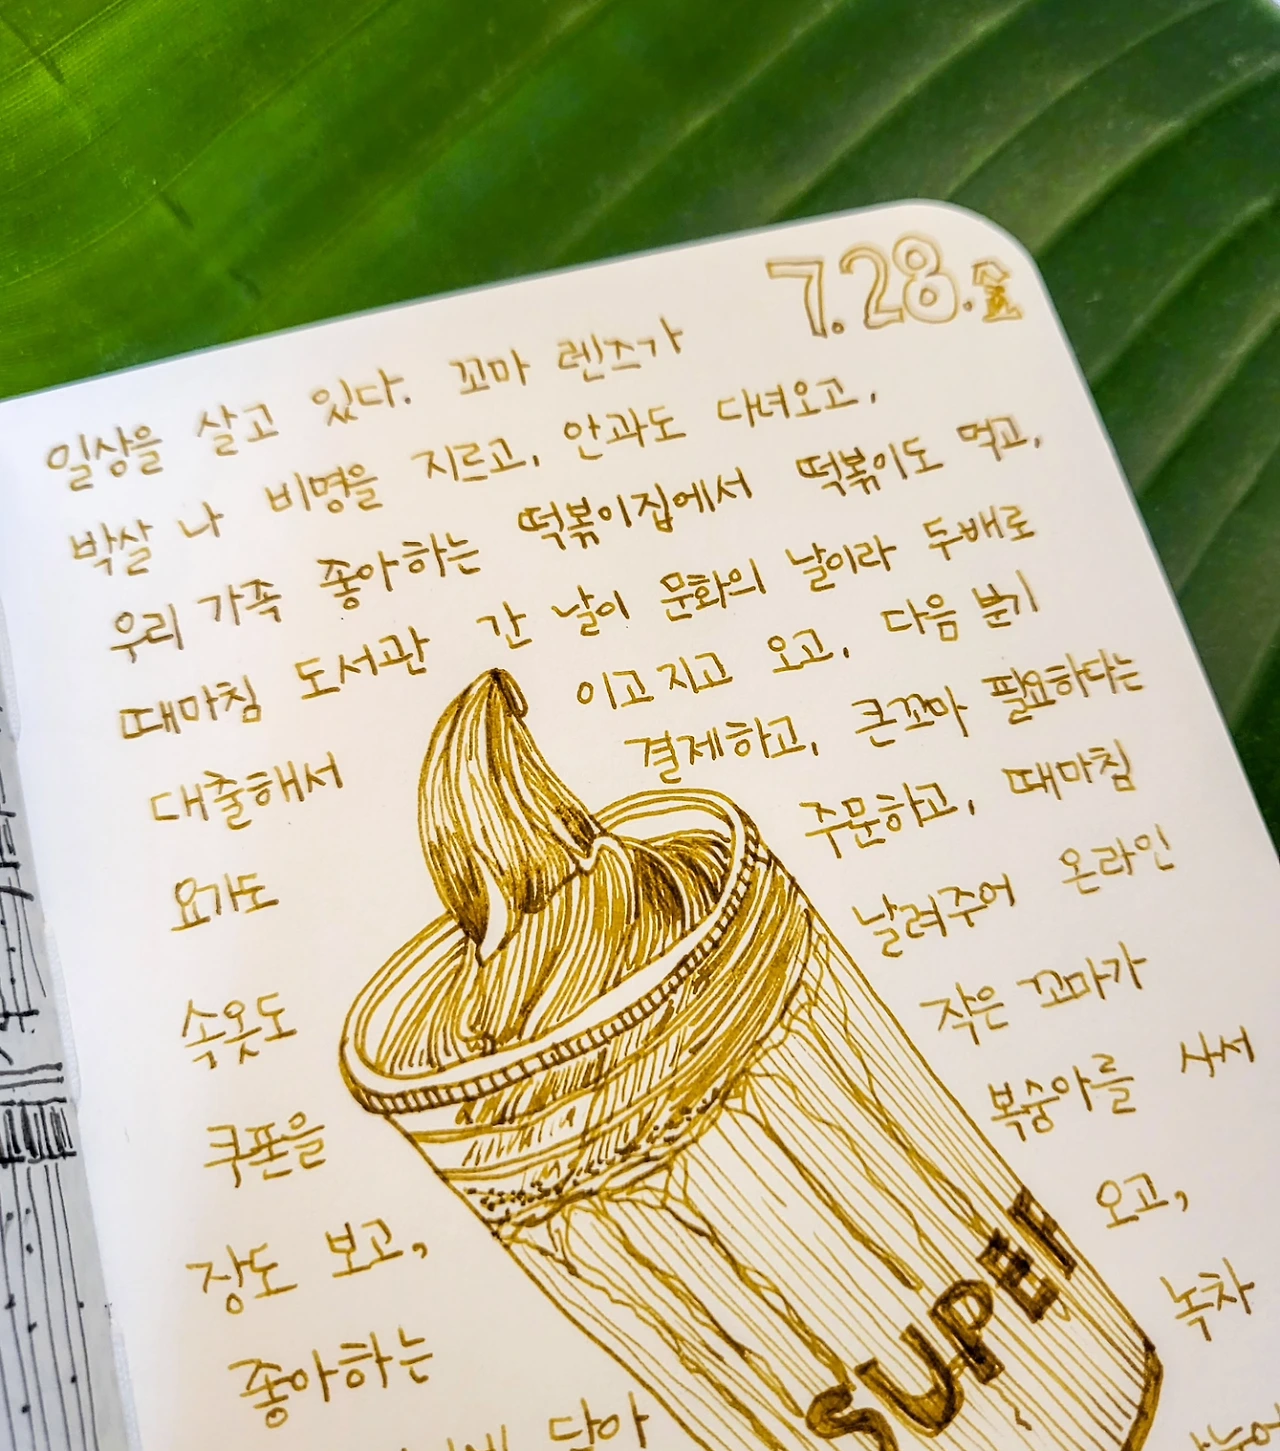 7.28.金
일상을 살고 있다. 꼬마 렌즈가
박살 나 비명을 지르고, 안과도 다녀오고,
우리 가족 좋아하는 떡볶이집에서 떡볶이도 먹고,
때마침 도서관 간 날이 문화의 날이라 두배로
대출해서 이고지고 오고, 다음 분기
요가도 결제하고, 큰꼬마 필요하다는
속옷도 주문하고, 때마침
쿠폰을 날려주어 온라인
장도 보고, 작은 꼬마가
좋아하는 복숭아를 사서
담아 오고,
녹차
SUPER